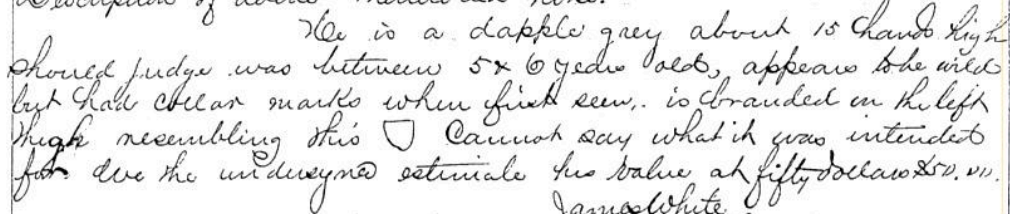 Description of above mentioned horse.
He is a dapple grey about 15 hands high
should judge was between 5 & 6 years old, appears to be wild
but had collar marks when first seen, is branded on the left
thigh resembling this Cannot say what it was intended
for we the undersyned estimate his value at fifty dollars $50.00.
James White